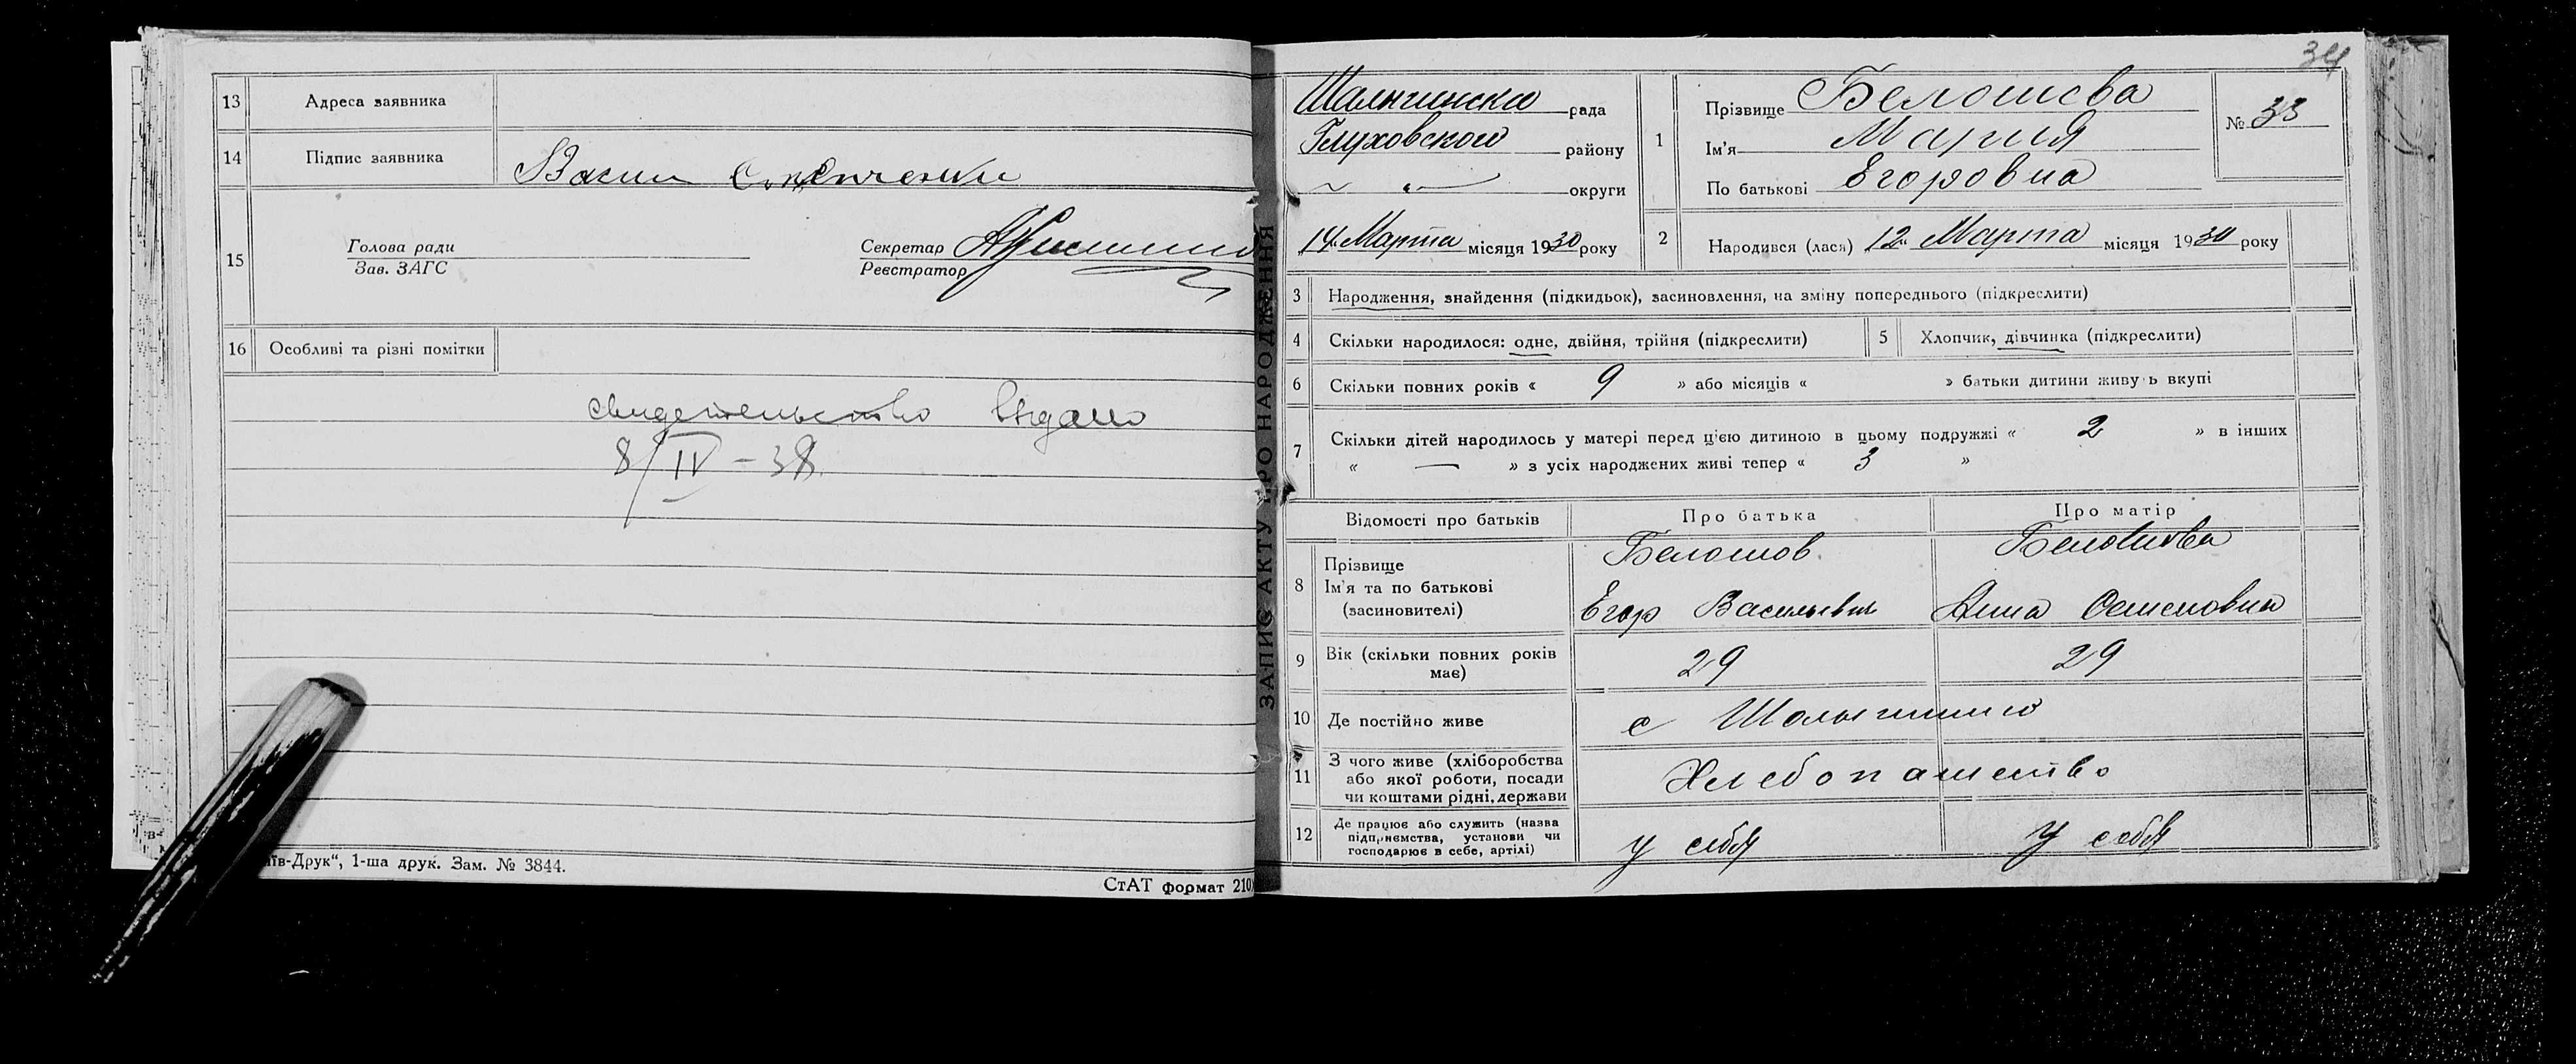 13 Адреса заявника
14 Підпис заявника
15 Голова ради
Зав. ЗАГС
Секретар
Реєстратор
16 Особливі та різні помітки
свидетельство выдано
8/IV – 38
"Київ-Друк“, 1-ша друк. Зам. № 3844.
СтАТ формат 210
ЗАПИС АКТУ ПРО НАРОДЖЕННЯ
34
рада
Глуховского району
округи
14 Марта місяця 1930 року
1 Прізвище Белошева
Ім'я Мария
По батькові Егоровна
№ 33
2 Народився (лася) 12 Марта місяця 1930 року
3 Народження, знайдення (підкидьок), засиновлення, на зміну попереднього (підкреслити)
4 Скільки народилося: одне, двійня, трійня (підкреслити)
5 Хлопчик, дівчинка (підкреслити)
6 Скільки повних років « 9 » або місяців « » батьки дитини живуь вкупі
7 Скільки дітей народилось у матері перед цією дитиною в цьому подружжі « 2 » в інших
« — » з усіх народжених живі тепер « 3 »
Відомості про батьків Про батька Про матір
8 Прізвище Белошов Белошова
Ім'я та по батькові
(засновителі) Егор Васильевич Анна Семеновна
9 Вік (скільки повних років має) 29 29
10 Де постійно живе с Шалыгино
11 З чого живе (хліборобства
або якої роботи, посади
чи коштами рідні, держави Хлебопашество
12 Де працює або служить (назва
підприємства, установи чи
господарює в себе, артілі) у себя у себя